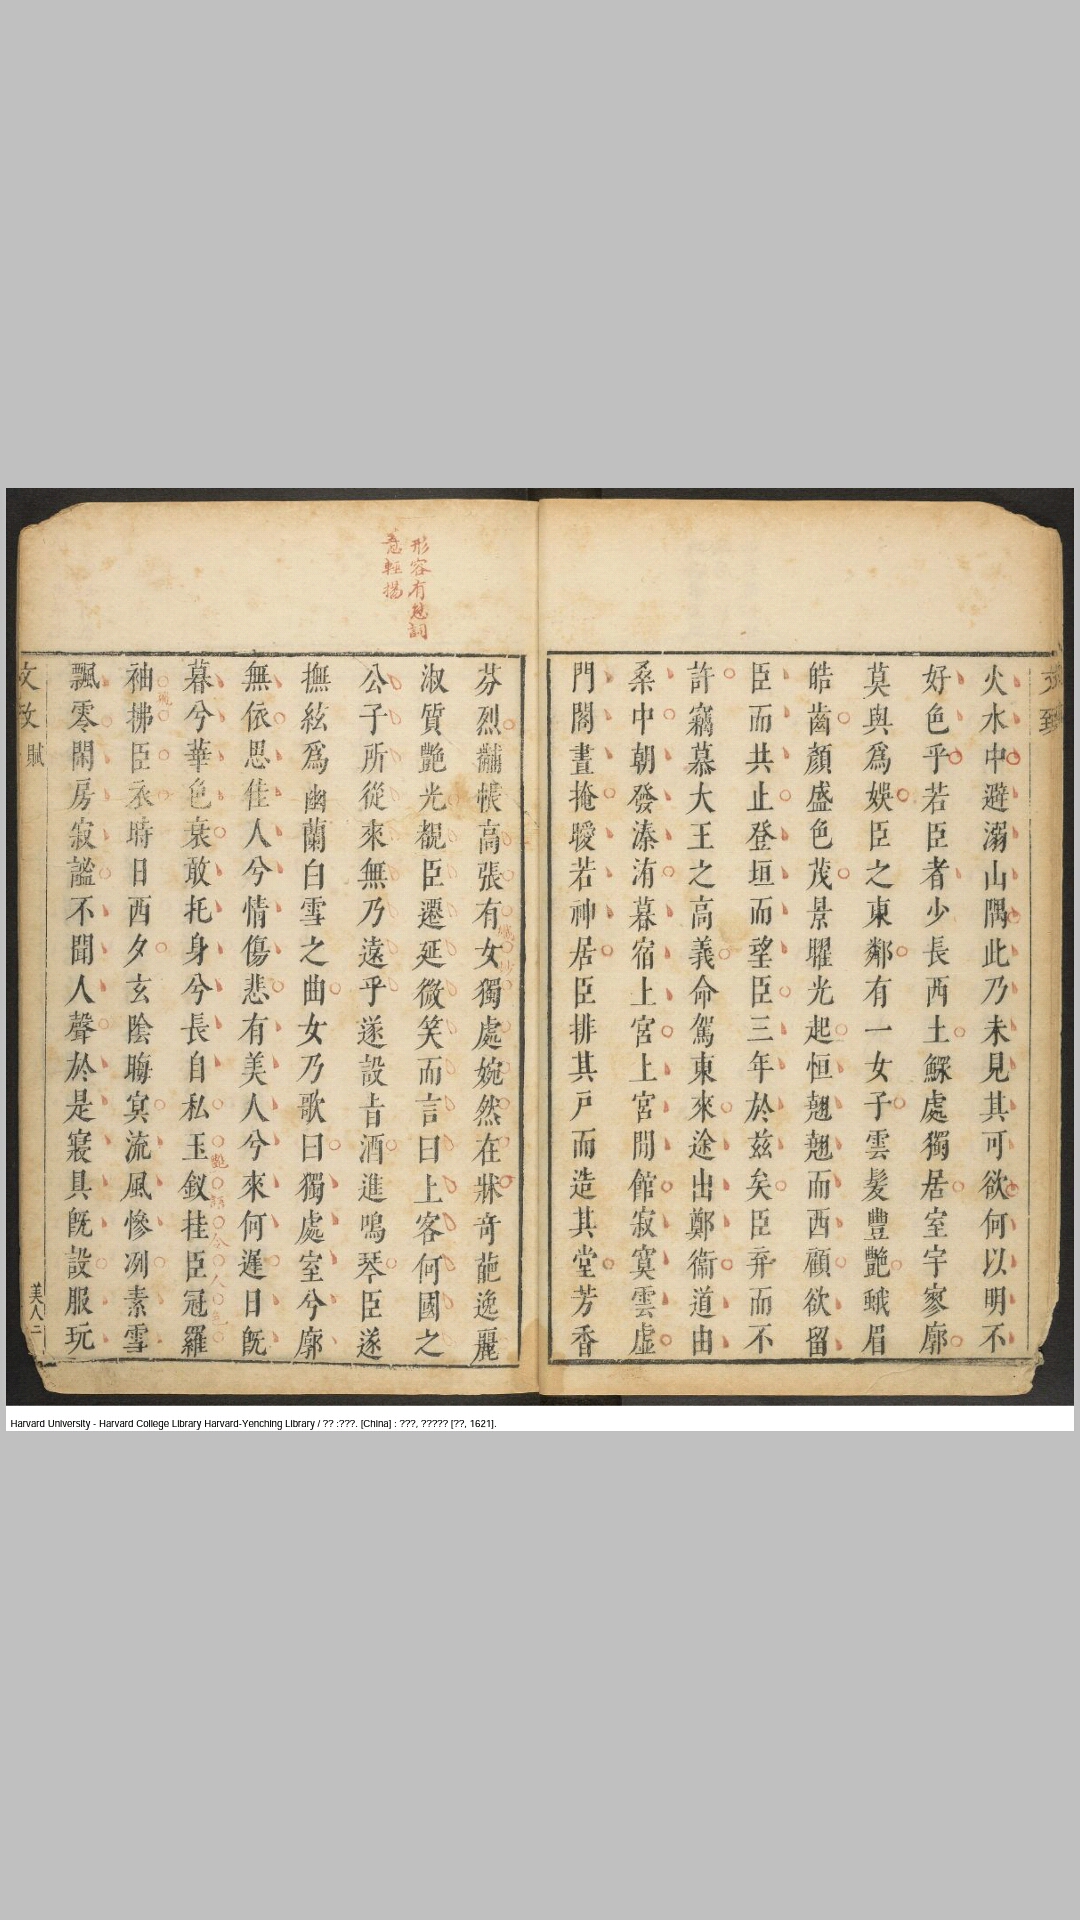 火水中避溺山隅此乃未見其可欲何以明不
好色乎若臣者少長西土鰥處獨居室宇寥廓
莫與爲娛臣之東鄰有一女子雲髮豐艷蛾眉
皓齒顏盛色茂景曜光起恒翹翹而西顧欲留
臣而共止登垣而望臣三年於兹矣臣弃而不
許竊慕大王之高義命駕東來途出鄭衞道由
桑中朝發溱洧暮宿上宮上宮閒館寂寞雲虛
門閤晝掩曖若神居臣排其戶而造其堂芳香
形容有態詞
意輕揚
芬烈黼帳高張有女獨處婉然在牀奇葩逸麗
淑質艷光覩臣遷延微笑而言曰上客何國之
公子所從來無乃遠乎遂設旨酒進鳴琴臣遂
撫絃爲幽蘭白雪之曲女乃歌曰獨處室兮廓
無依思佳人兮情傷悲有美人兮來何遲日旣
暮兮華色衰敢托身兮長自私玉釵挂臣冠羅
艷語令人色
袖拂臣衣時日西夕玄陰晦冥流風慘冽素雪
飄零閑房寂謐不聞人聲於是寢具旣設服玩
文致 賦
美人二
Harvard University - Harvard College Library Harvard-Yenching Library / ?? :???. [China] : ???, ????? [??, 1621].